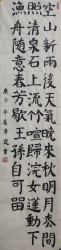 空山新雨後天氣晚來秋明月松間
照清泉石上流竹喧歸浣女蓮動下
漁舟隨意春芳歇王孫自可留
庚子年